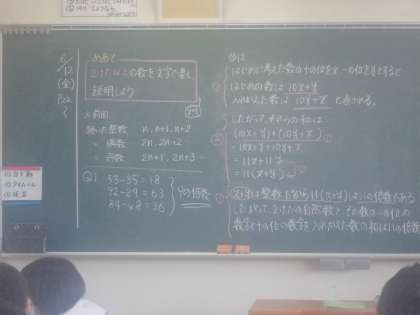 6/12
(金)
P22
めあて
2けた以上の数を文字で表し
説明しよう
前回
連続した整数 n, n+1, n+2
偶数 2n, 2n+2
奇数 2n+1, 2n+3
Q1
53-35=18
92-29=63
84-48=36
9の倍数
はじめに考えた数の十の位をx 一の位をyとすると
はじめの数は 10x+y
入れかえた数は 10y+x と表せる。
したがって、それらの和は
(10x+y)+(10y+x)
=10x+y+10y+x
=11x+11y
=11(x+y)
x+yは整数だから 11(x+y)は11の倍数である
したがって、2けたの自然数と、その数の一の位の
数字と十の位の数字を入れかえた数の和は11の倍数